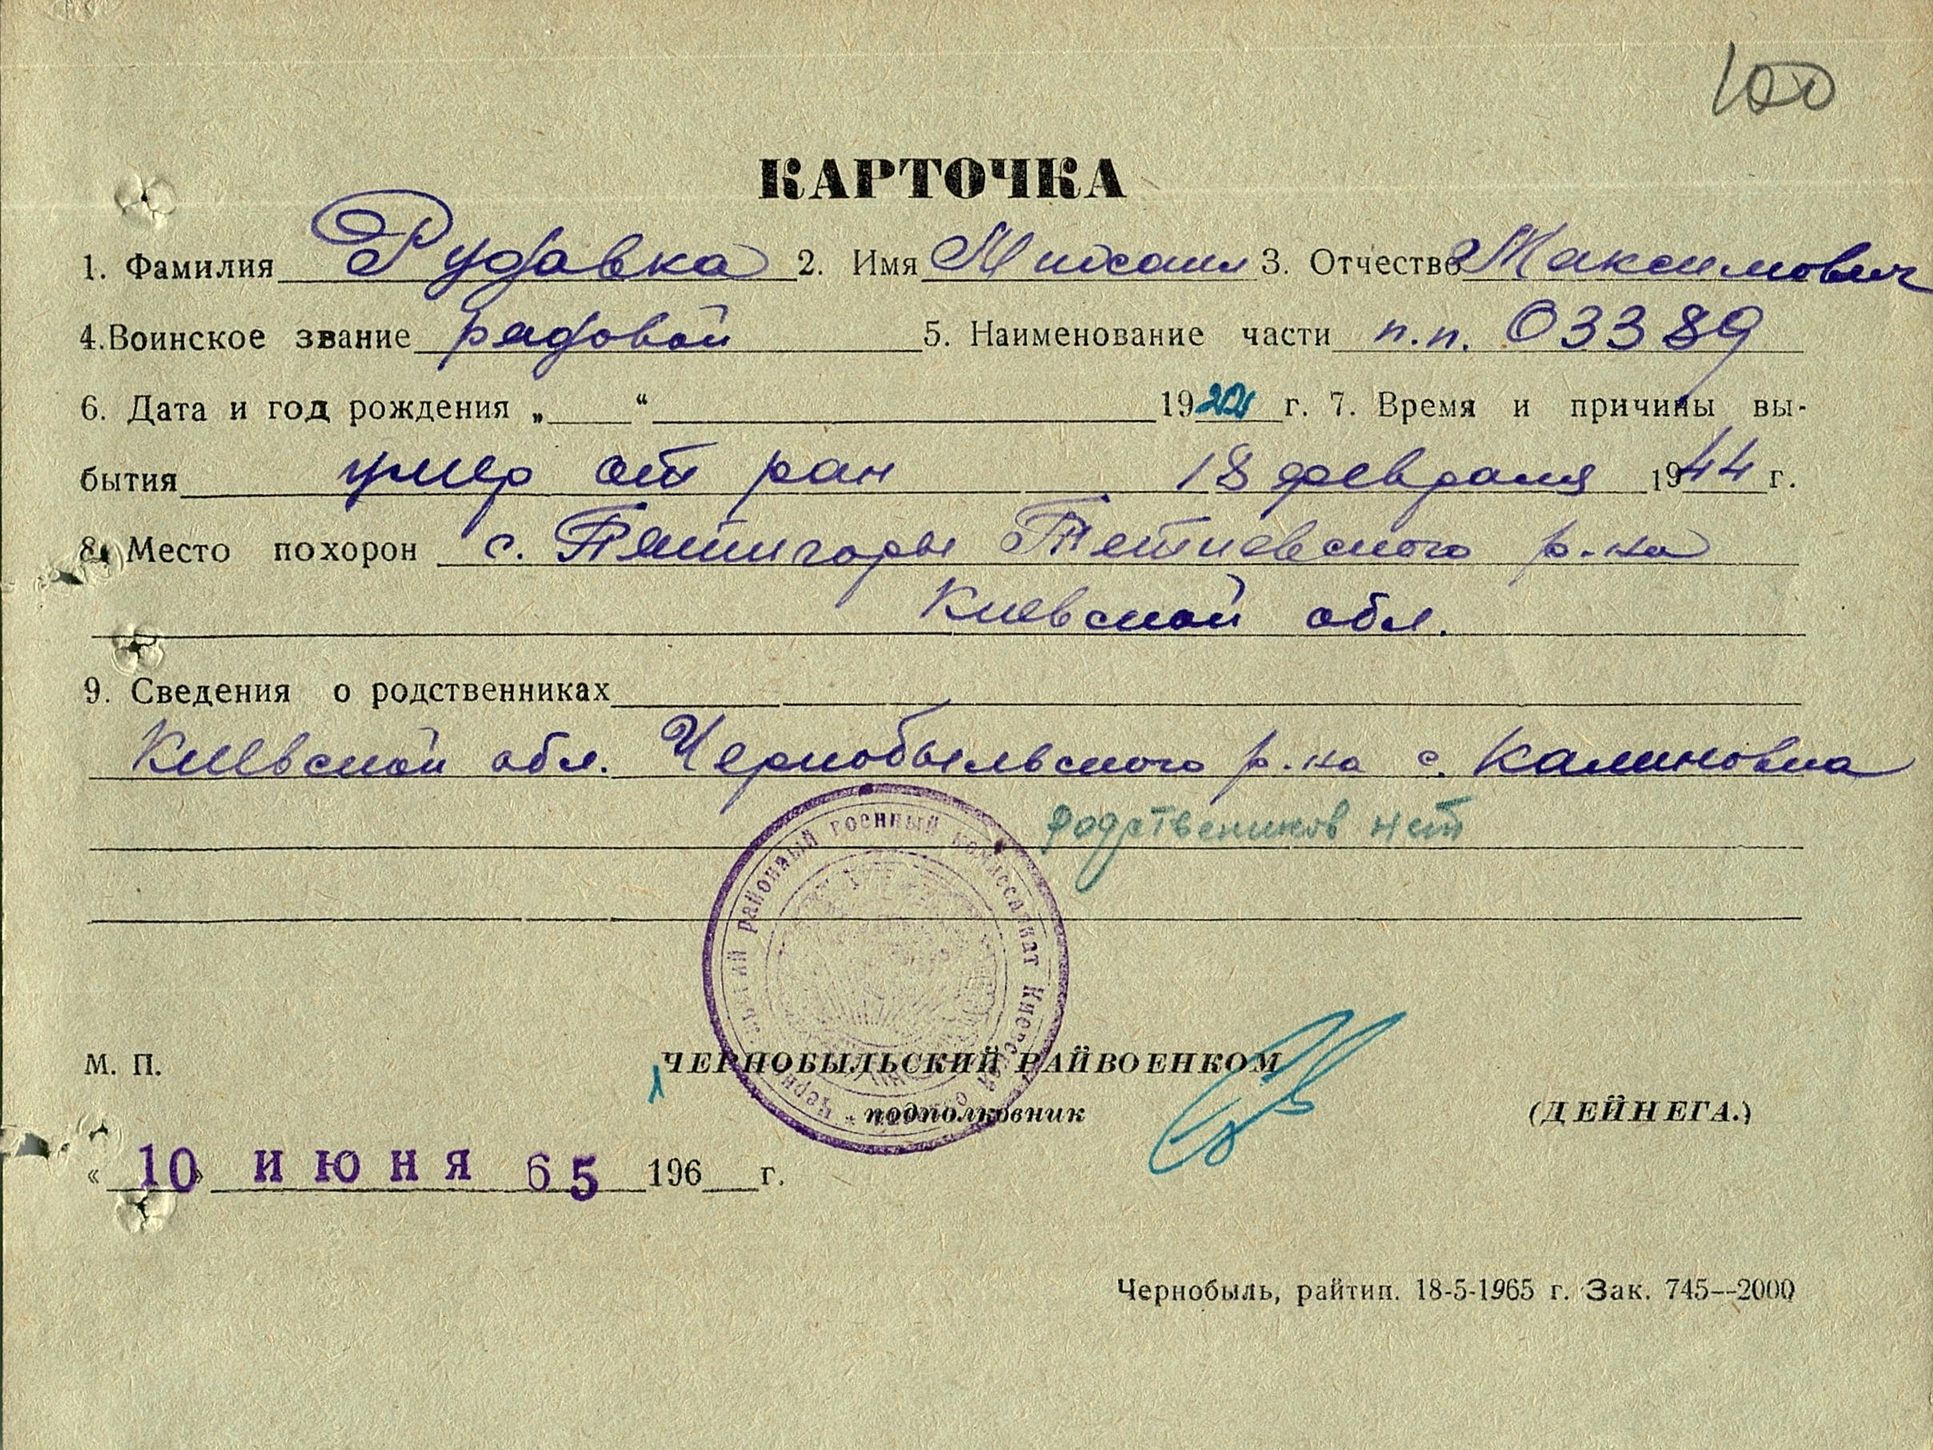 100
КАРТОЧКА
1. Фамилия Рудавка 2. Имя Михаил 3. Отчество Максимович
4. Воинское звание рядовой 5. Наименование части п.п. 03389
6. Дата и год рождения „ “ 19 г. 7. Время и причины вы-
бытия умер от ран 18 февраля 1944 г.
8. Место похорон с. Пятигоры Тетиевского р-на
Киевской обл.
9. Сведения о родственниках
Киевской обл. Чернобыльского р-на с. Калиновка
родствеников нет
районный военный комиссариат Киевской
М. П.
ЧЕРНОБЫЛЬСКИЙ РАЙВОЕНКОМ
подполковник (ДЕЙНЕГА.)
«10» ИЮНЯ 65 196 г.
Чернобыль, райтип. 18-5-1965 г. Зак. 745--2000